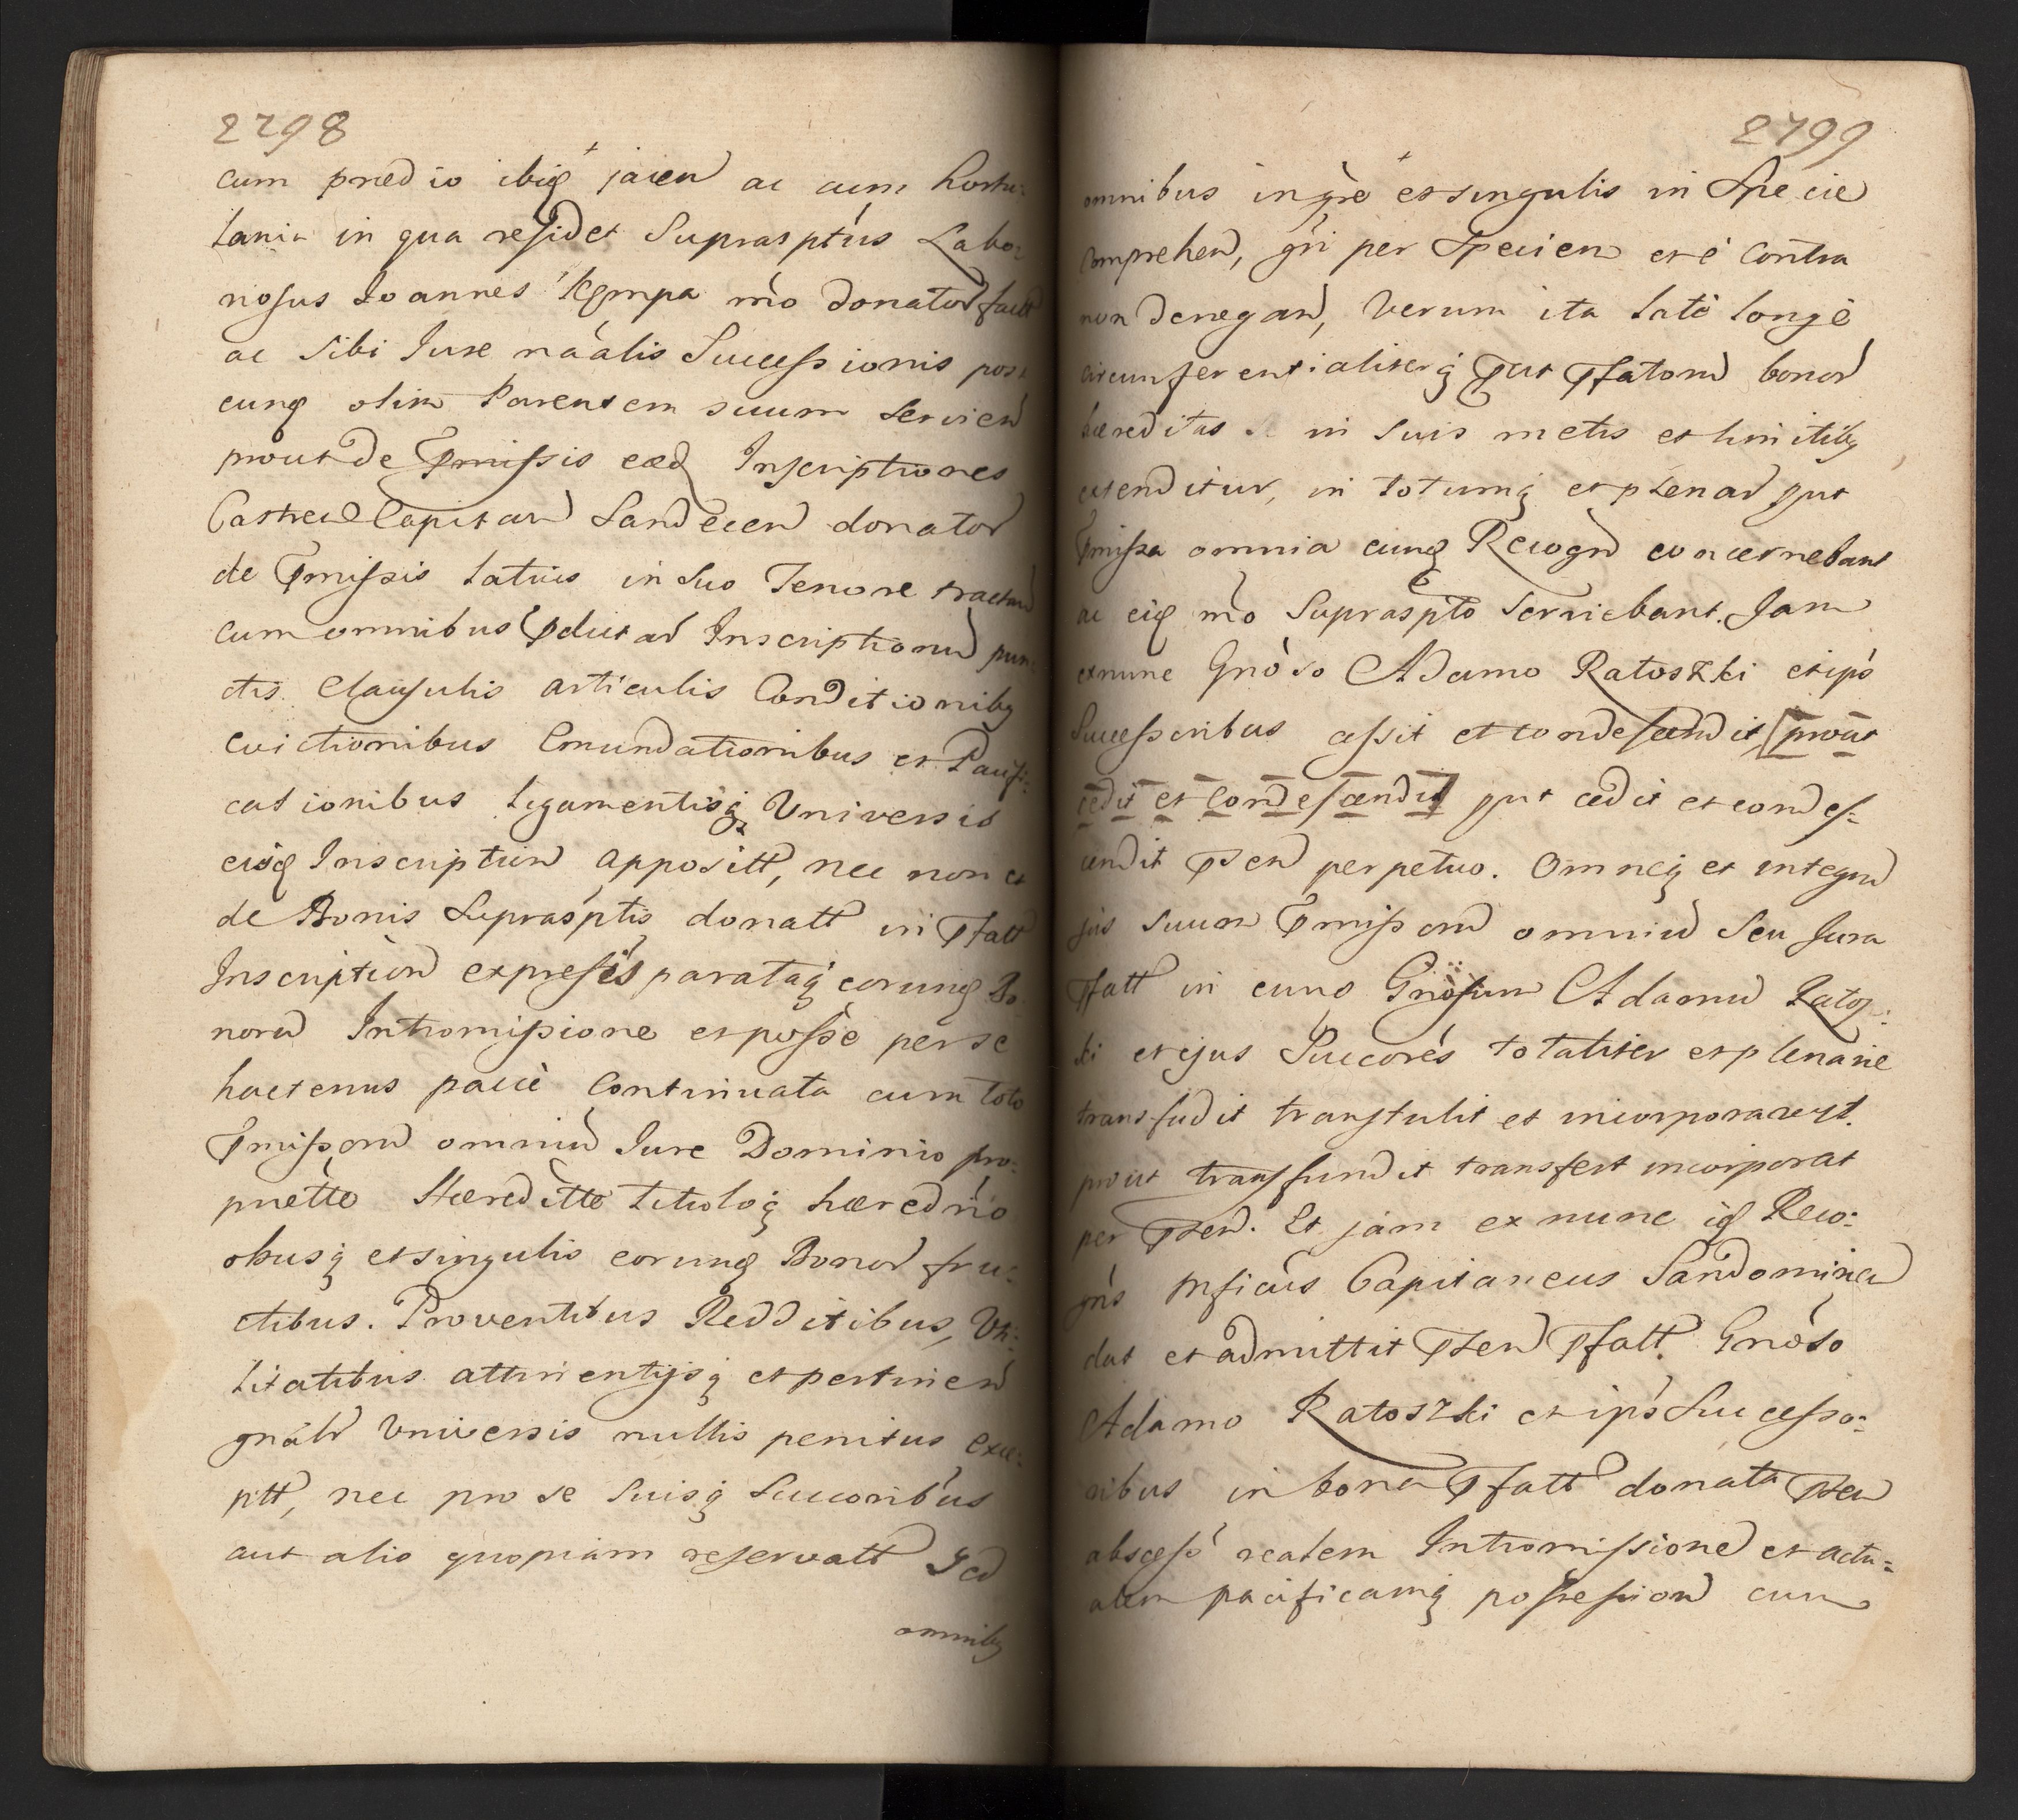 2798
cum prædio ibiq jacen ac cum hortu:
lania in qua residet Suprasptus Labo:
riosus Joannes Kempa mo donator fact
ac sibi Jure naalis Successionis post
eunq olim Parentem suum servien
prout de Pmissis eæd Inscriptiones
Castren Capitan Sandecen donator
de Pmissis latius in suo Tenore tractan
cum omnibus Pdictar Inscriptionu pun:
ctis Clausulis articulis Conditionibq
evictionibus Emundationibus et Pacifi:
cationibus Ligamentisq Universis
eisq Inscription appositt, nec non et
de Bonis Suprasptis donatt in Pfatt
Inscription expressis parataq eorunq Bo:
noru Intromissione et posse per se
hactenus pacie Continuata cum toto
Pmissoru omniu Jure Dominio pro:
priette Hæreditte tituloq hæredrio
obusq et singulis eorunq Bonor fru:
ctibus. Proventibus Redditibus, Uti:
litatibus attinentijsq et pertinen
gnalr Universis nullis penitus exce:
ptt, nec pro se suisq Succoribus
aut alio quopiam reservatt Sed
omnibq
2799
omnibus in gre et singulis in Specie
comprehen, gri per Speciem et è contra
non denegan, verum ita latè longè
circumferentialiterq Put Pfatoru bonor
hæreditas in suis metis et limitibq
extenditur, in totumq et plenar put
Pmissa omnia eunq Recogn concernebant
ac eiq mo Supraspto serviebant. Jam
exnunc Gnoso Adamo Ratoszki et ips
Successoribus cessit et condescendit prout
cedit et Condescendit put cedit et condes:
cendit Psen perpetuo. Omneq et integru
jus suum Pmissoru omniu Seu Jura
Pfatt in eunq Gnosum Adamu Ratos:
ki et ejus Succorés totaliter et plenarie
transfudit transtulit et incorporavit.
prout transfundit transfert incorporat
per Psen. Et jam ex nunc iq Reco:
gns Mficus Capitaneus Sandomirien
dat et admittit Psen Pfatt Gnoso
Adamo Ratoszki et ips Successo:
ribus in bona Pfatt donata Psen
abscesso realem Intromissione et actu:
alem pacificamq possession cum